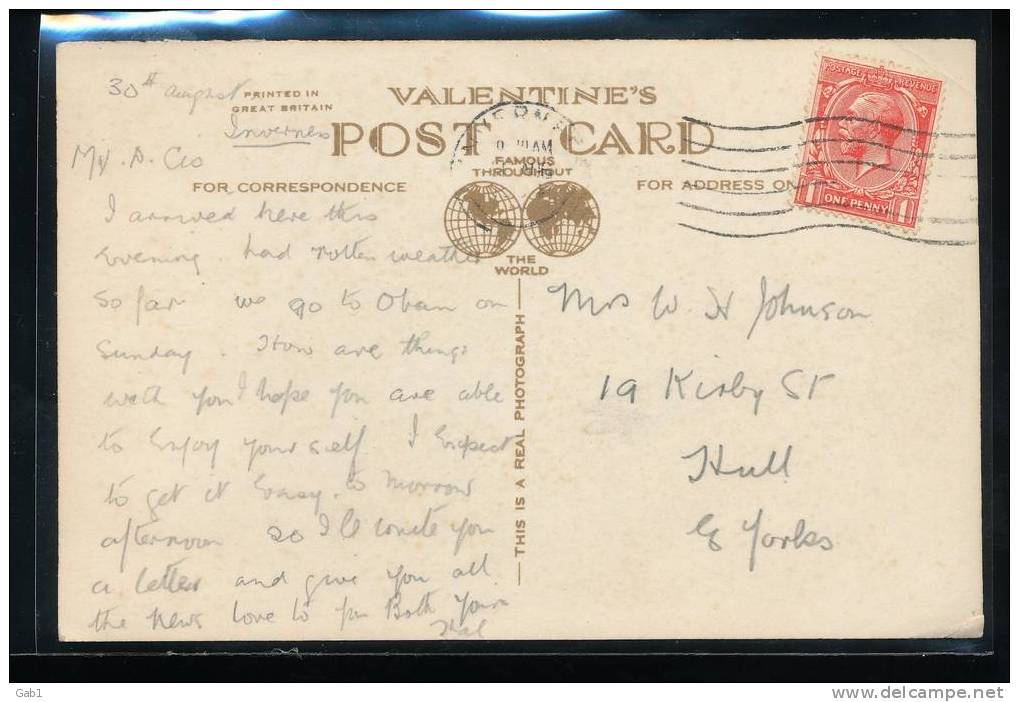 30th August
Inverness
PRINTED IN
GREAT BRITAIN
VALENTINE'S
POST CARD
FAMOUS
THROUGHOUT
THE
WORLD
FOR CORRESPONDENCE
FOR ADDRESS ON
POSTAGE REVENUE
ONE PENNY
1 1
AM
I arrived here this
Evening. had rotten weather
so far we go to Oban on
Sunday. How are things
with you I hope you are able
to Enjoy yourself I Expect
to get it Easy to morrow
afternoon so I'll write you
a letter and give you all
the news love to you Both Yours
Hal
THIS IS A REAL PHOTOGRAPH
Mrs W H Johnson
19 Kirby St
Hull
E Yorks
Gab1
www.delcampe.net